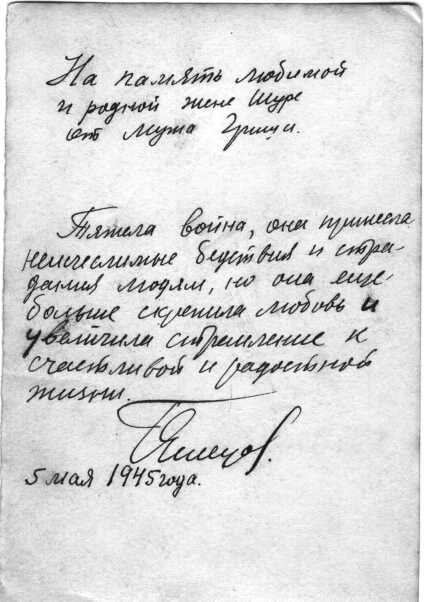 На память любимой
и родной жене Шуре
от мужа Гриши.
Тяжела война, она принесла
неисчеслимые бедствия и стра-
дания людям, но она еще
больше скрепила любовь и
увеличила стремление к
счастливой и радостной
жизни.
5 мая 1945 года.